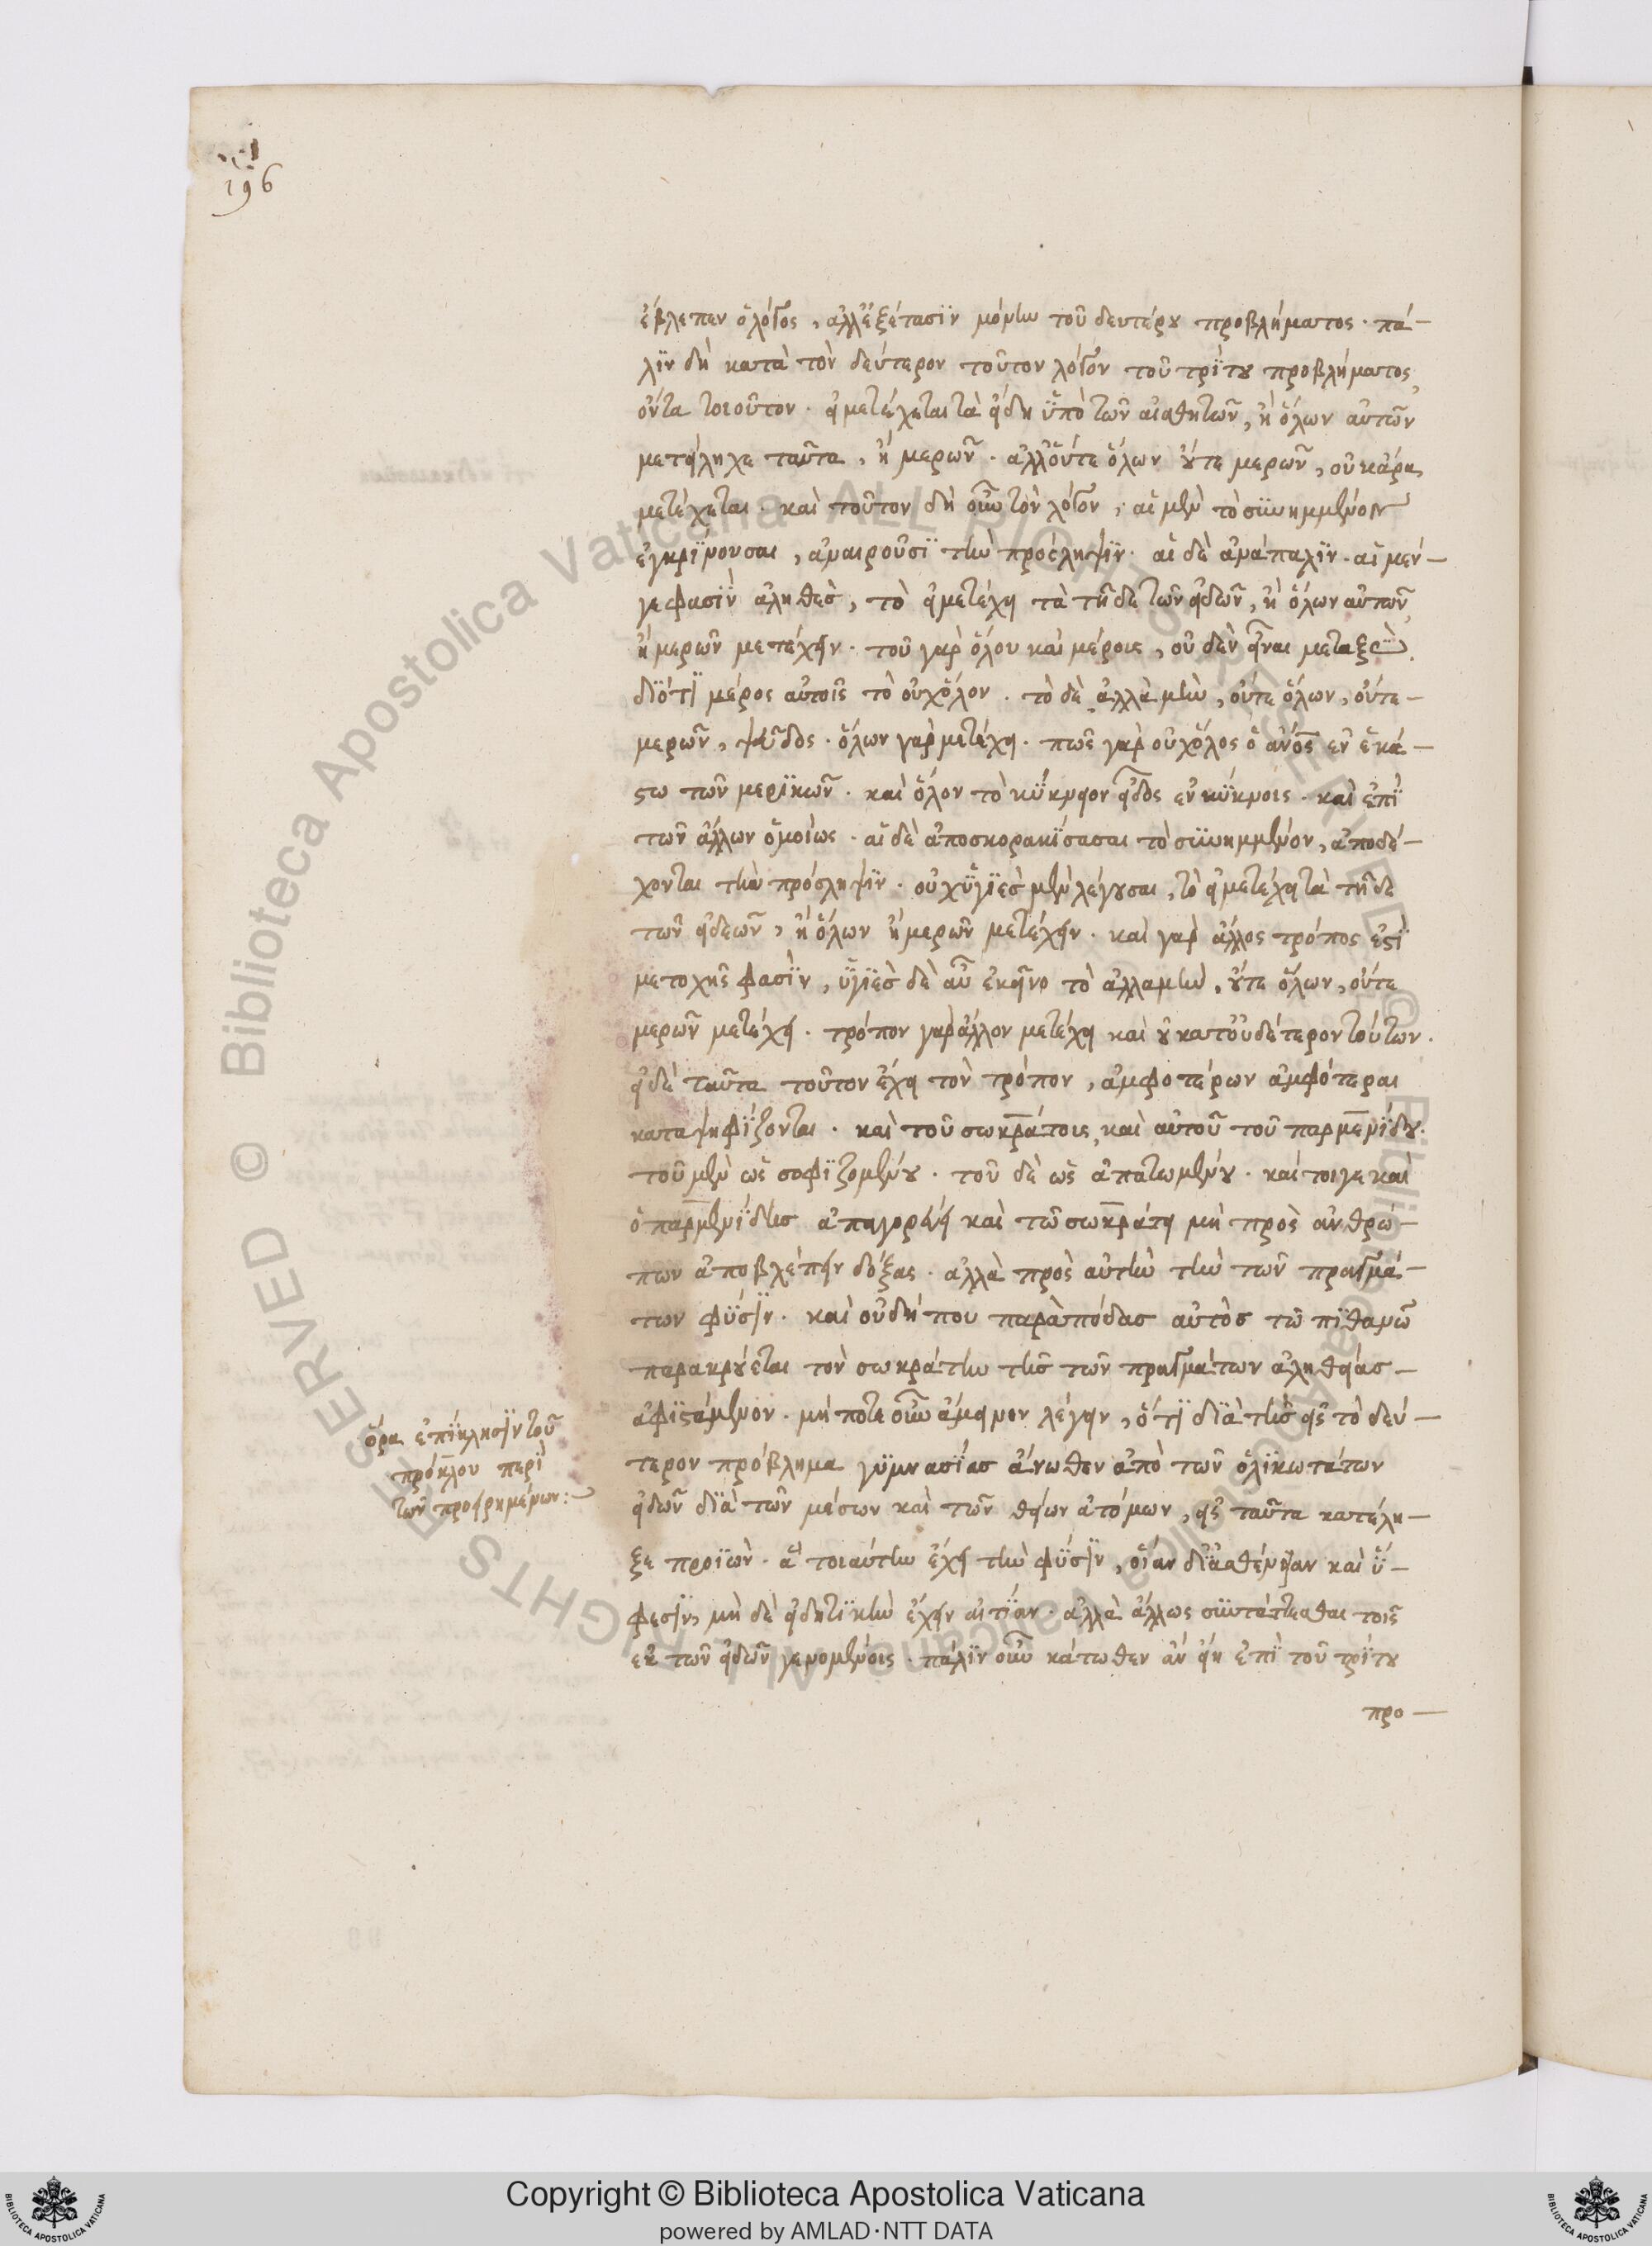 196
ἔβλεπεν ὁ λόγος, ἀλλ' ἐξέτασϊν μόνην τοῦ δευτέρου προβλήματος. πά-
λϊν δὴ κατὰ τὸν δεύτερον τοῦτον λόγον τοῦ τρίτου προβλήματος
ὄντα τοιοῦτον. εἰ μετέχεται τὰ εἴδη ὑπὸ τῶν αἰσθητῶν, ἢ ὅλων αὐτῶν
μετείληχε ταῦτα, ἢ μερῶν. ἀλλ' οὔτε ὅλων οὔτε μερῶν, οὐκ ἄρα
μετέχεται. καὶ τοῦτον δὴ οὖν τὸν λόγον, αἱ μὲν τὸ συνημμένον
ἐγκρίνουσαι, ἀναιροῦσϊ τὴν πρόσληψϊν. αἱ δὲ ἀνάπαλϊν. αἱ μέν-
γε φασὶν ἀληθὲς, τὸ εἰ μετέχει τὰ τῇδε τῶν εἰδῶν, ἢ ὅλων αὐτῶν
ἢ μερῶν μετέχειν. τοῦ γὰρ ὅλου καὶ μέρους, οὐδὲν εἶναι μεταξὺ
διότϊ μέρος αὐτοῖς τὸ οὐχ ὅλον. τὸ δὲ ἀλλὰ μὴν, οὔτε ὅλων, οὔτε-
μερῶν, ψεῦδος. ὅλων γὰρ μετέχει. πῶς γὰρ οὐχ ὅλος ὁ ἀνος ἐν ἑκά-
στω τῶν μερϊκῶν. καὶ ὅλον τὸ κύκνειον εἶδος ἐν κύκνοις. καὶ ἐπὶ
τῶν ἄλλων ὁμοίως. αἱ δὲ ἀποσκορακίσασαι τὸ συνημμένον, ἀποδέ-
χονται τὴν πρόσληψϊν. οὐχ ὑγϊὲς μὲν λέγουσαι, τὸ εἰ μετέχει τὰ τῇδε
τῶν εἰδεῶν, ἢ ὅλων ἢ μερῶν μετέχειν. καὶ γὰρ ἄλλος τρόπος ἐστϊ
μετοχῆς φασὶν, ὑγϊὲς δὲ αὖ ἐκεῖνο τὸ ἀλλαμὴν, οὔτε ὅλων, οὔτε
μερῶν μετέχει. τρόπον γὰρ ἄλλον μετέχει καὶ οὐ κατ' οὐδέτερον τούτων.
εἰ δὲ ταῦτα τοῦτον ἔχει τὸν τρόπον, ἀμφοτέρων ἀμφότεραι
καταψηφίζονται. καὶ τοῦ σωκράτους, καὶ αὐτοῦ τοῦ παρμενίδου.
τοῦ μὲν ὡς σοφϊζομένου. τοῦ δὲ ὡς ἀπατωμένου. καίτοιγε καὶ
ὁ παρμενίδης ἀπηγορεύει καὶ τῶ σωκράτη μὴ πρὸς ἀνθρώ-
πων ἀποβλέπειν δόξας. ἀλλὰ πρὸς αὐτὴν τὴν τῶν πραγμά-
των φύσϊν. καὶ οὐδήπου παρὰ πόδας αὐτὸς τῶ πϊθανῶ
παρακρούεται τὸν σωκράτην τῆς τῶν πραγμάτων ἀληθείας-
ἀφϊστάμενον. μήποτε οὖν ἄμεινον λέγειν, ὅτϊ διὰ τῆς εἰς τὸ δεύ-
τερον πρόβλημα γυμνασίας ἄνωθεν ἀπὸ τῶν ὁλϊκωτάτων
εἰδῶν διὰ τῶν μέσων καὶ τῶν θείων ἀτόμων, εἰς ταῦτα κατέλη-
ξε προϊὼν. ἃ τοιαύτην ἔχει τὴν φύσϊν, οἵαν δι' ἀσθένειαν καὶ ὕ-
φεσϊν, μὴ δὲ εἰδητϊκὴν ἔχειν αἰτίαν. ἀλλὰ ἄλλως συντάττεσθαι τοῖς
ἐκ τῶν εἰδῶν γενομένοις. πάλϊν οὖν κάτωθεν ἂν εἴη ἐπὶ τοῦ τρίτου
προ-
ὅρα ἐπίκλησϊν τοῦ
πρόκλου περὶ
τῶν προειρημένων:-
Copyright © Biblioteca Apostolica Vaticana
powered by AMLAD·NTT DATA